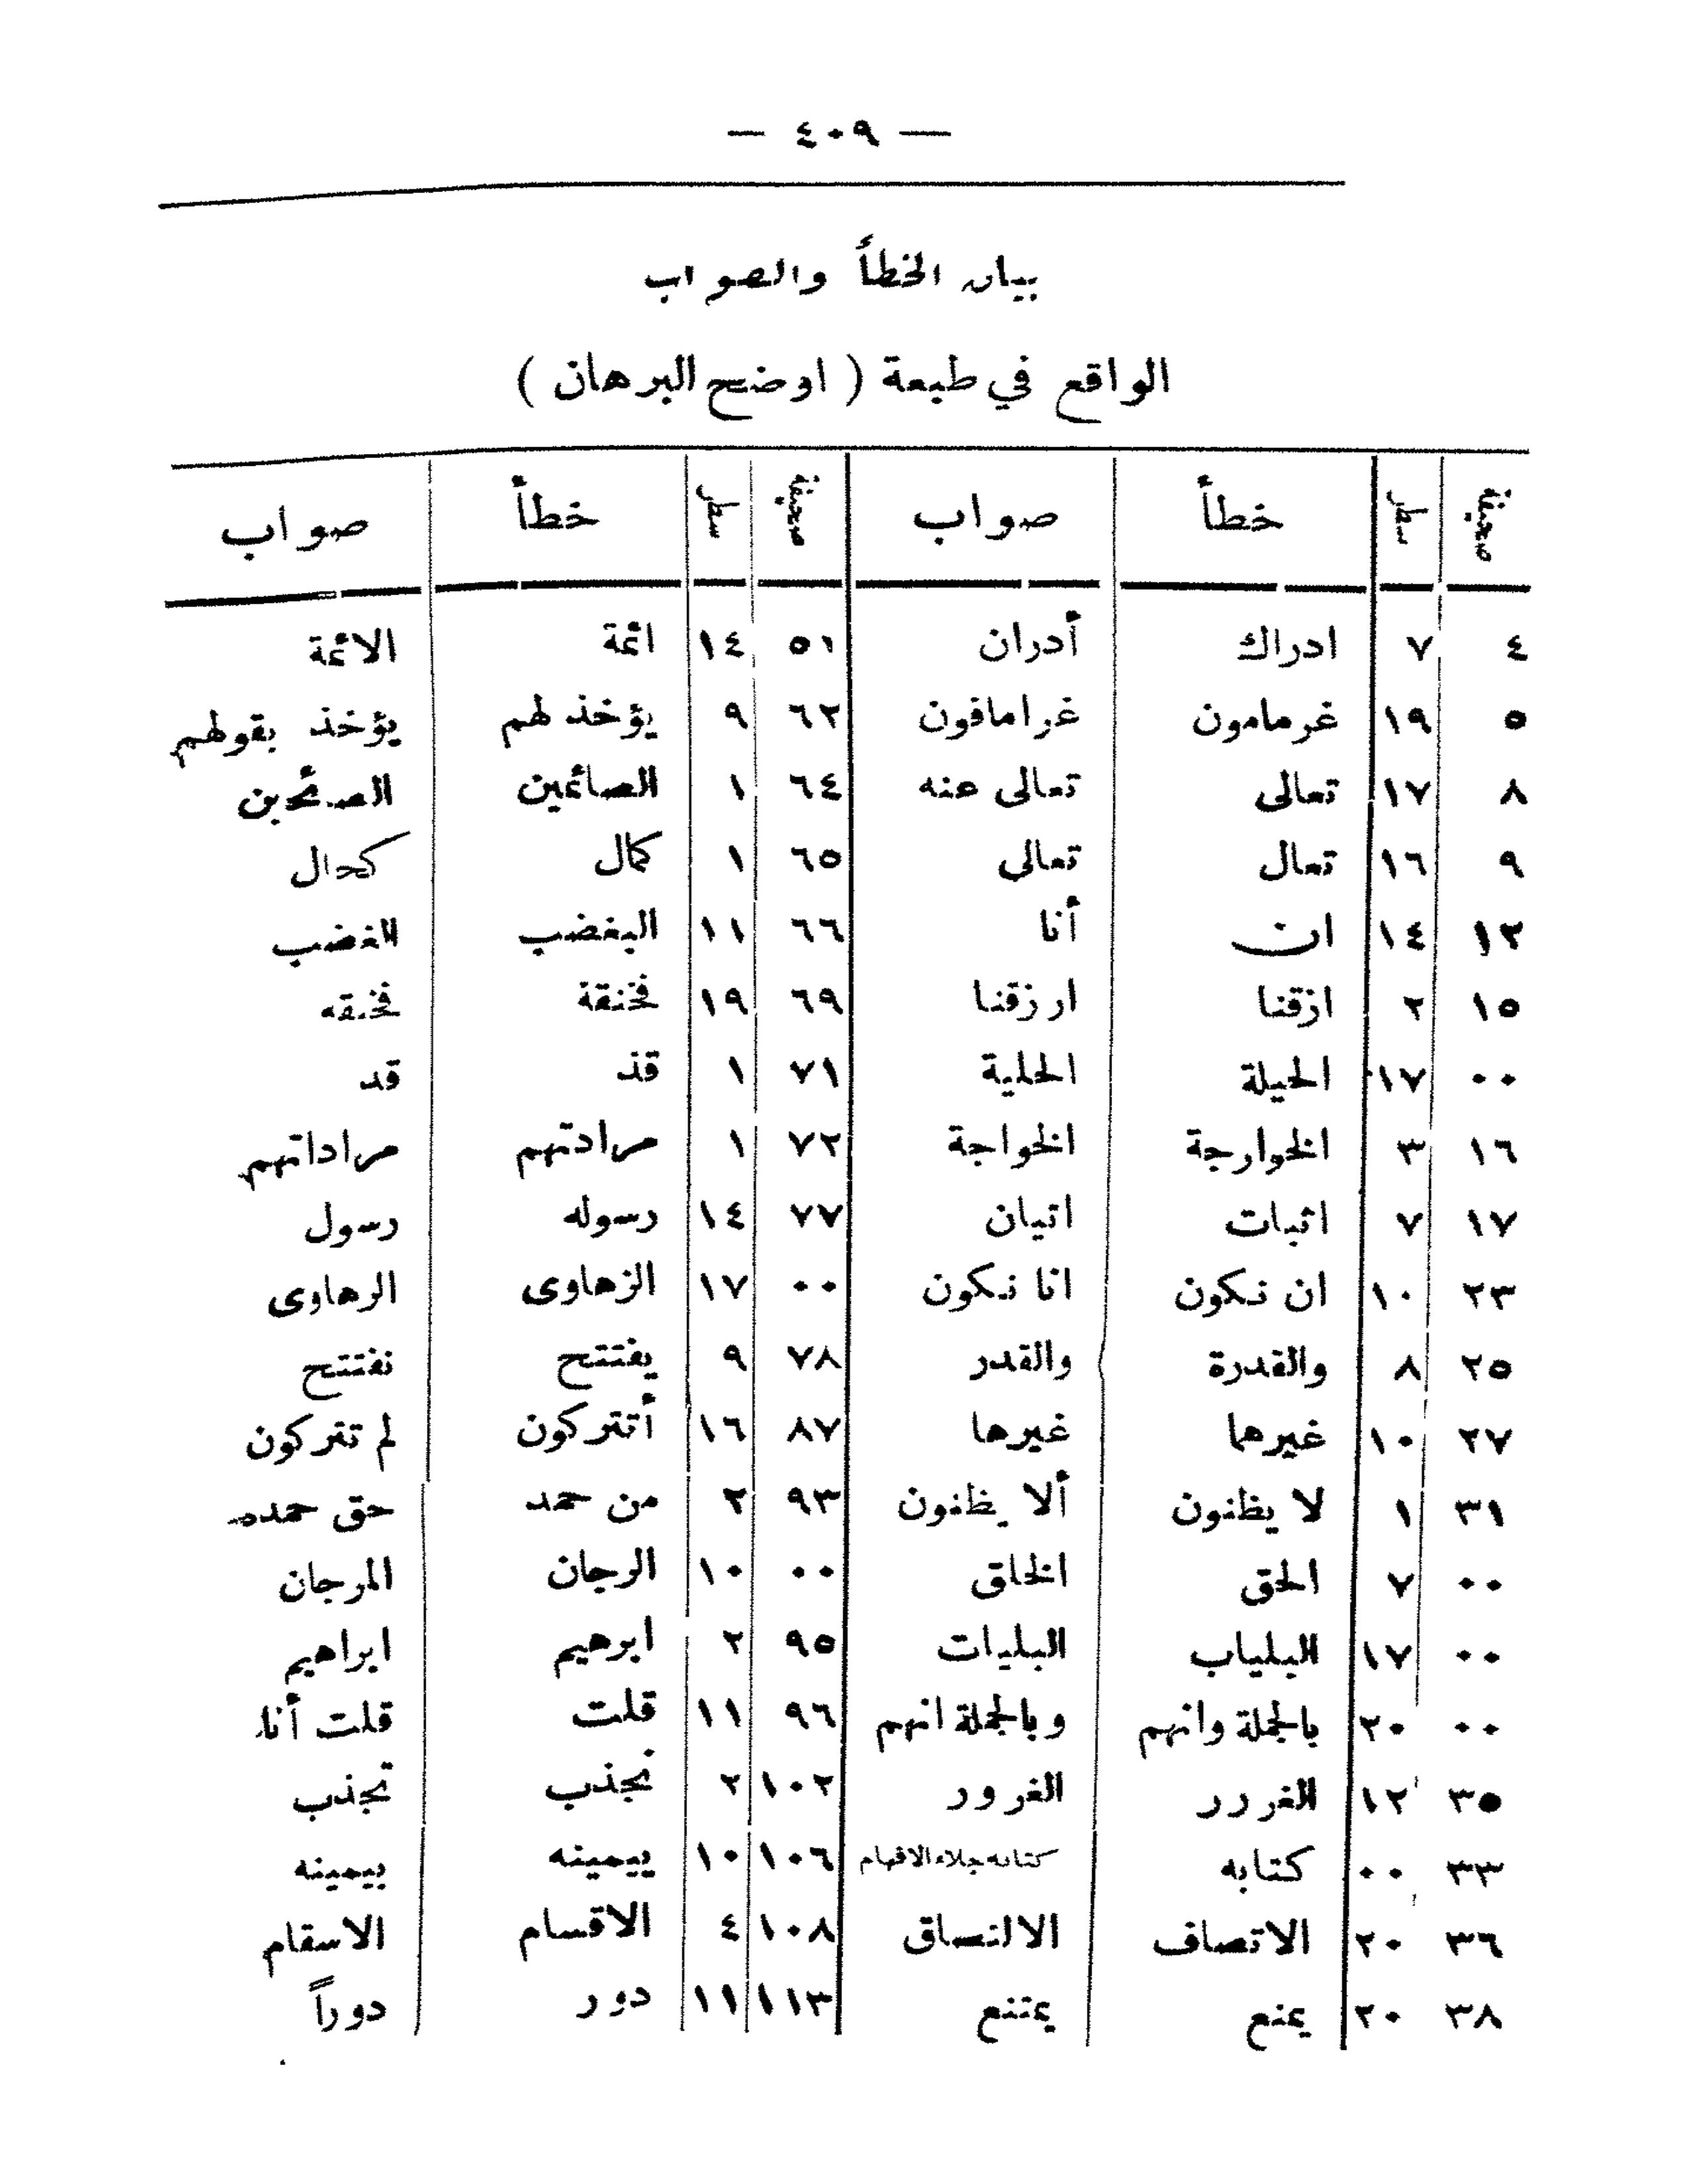 — ٤٠٩ —
بيان الخطأ والصواب
الواقع في طبعة ( اوضح البرهان )
صحيفة سطر خطأ صواب صحيفة سطر خطأ صواب
٤ ٧ ادراك أدران ٥١ ١٤ ائمة الائمة
٥ ١٩ غرمامون غرامافون ٦٢ ٩ يؤخذ لهم يؤخذ بقولهم
٨ ١٧ تعالى تعالى عنه ٦٤ ١ الصائمين
٩ ١٦ تعال تعالى ٦٥ ١ كمال كحال
١٢ ١٤ ان أنا ٦٦ ١١ البغضب الغضب
١٥ ٢ ازقنا ارزقنا ٦٩ ١٩ فخنقة فخنقه
٠٠ ١٧ الحيلة الحلية ٧١ ١ قذ قد
١٦ ٣ الخوارجة الخواجة ٧٢ ١ مرادتهم مراداتهم
١٧ ٧ اثبات اتيان ٧٧ ١٤ رسوله رسول
٢٣ ١٠ ان نكون انا نكون ٠٠ ١٧ الزهاوى الرهاوى
٢٥ ٨ والقدرة والقدر ٧٨ ٩ يفتتح نفتتح
٢٧ ١٠ غيرهما غيرها ٨٧ ١٦ أتتركون لم تتركون
٣١ ١ لا يظنون ألا يظنون ٩٣ ٢ من حمد حق حمده
٠٠ ٧ الحق الخلق ٠٠ ١٠ الرجان المرجان
٠٠ ١٧ البلياب البليات ٩٥ ٢ ابرهيم ابراهيم
٠٠ ٢٠ بالجملة وانهم وبالجملة انهم ٩٦ ١١ قلت قلت أنا
٣٥ ١٢ الغررر الغرور ١٠٢ ٢ نجذب تجذب
٣٣ ٠٠ كتابه كتابه جلاء الافهام ١٠٦ ١٠ ييمينه بيمينه
٣٦ ٢٠ الاتصاف الالتصاق ١٠٨ ٤ الاقسام الاسقام
٣٨ ٢٠ يمنع يمتنع ١١٣ ١١ دور دوراً